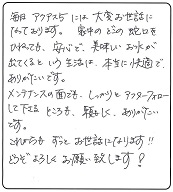 毎日アクアス5には大変お世話に
なっております。家中のどの蛇口を
ひねっても、安心で、美味しいお水が
出てくるという生活は、本当に快適で、
ありがたいです。
メンテナンスの面でも、しっかりとアフターフォロー
して下さるところも、頼もしく、ありがたい
です。
これからもずっとお世話になります!!
どうぞよろしくお願い致します!